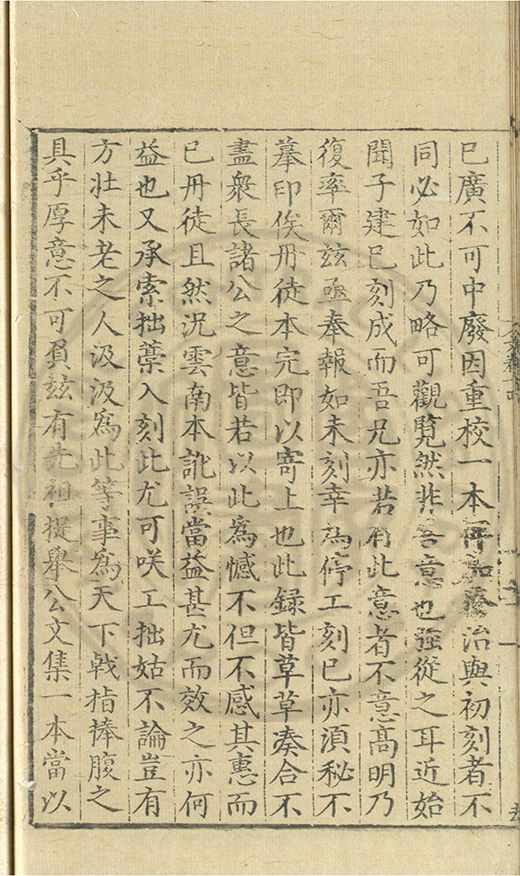 已廣不可中廢因重校一本加治與初刻者不
同必如此乃略可觀覧然非吾意也強從之耳近始
聞子建已刻成而吾兄亦若有此意者不意高明乃
復率爾兹亟奉報如未刻幸為停工刻已亦須秘不
摹印俟丹徒本完即以寄上也此録皆草草湊合不
盡衆長諸公之意皆若以此爲憾不但不感其惠而
已丹徒且然況雲南本訛誤當益甚尤而效之亦何
益也又承索拙藁入刻此尤可咲工拙姑不論豈有
方壯未老之人汲汲爲此等事爲天下戟指捧腹之
具乎厚意不可負兹有先祖提舉公文集一本當以